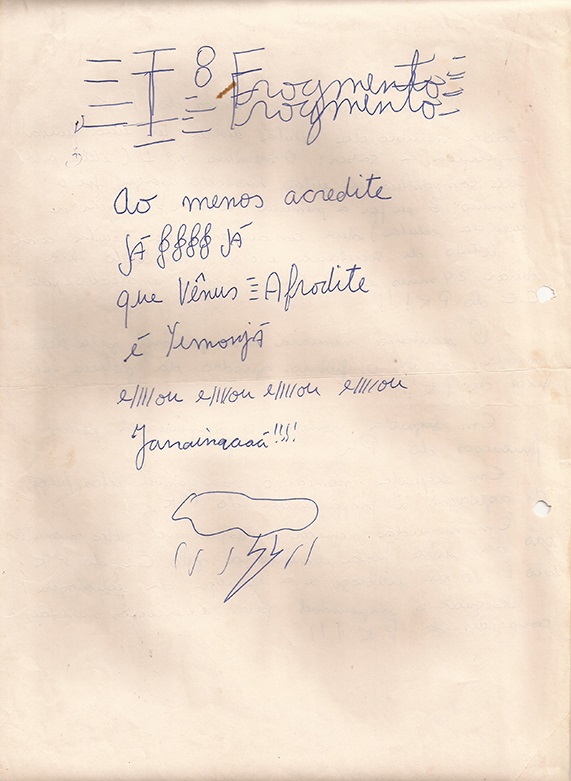 I 8 Fragmento
Fragmento
Ao menos acredite
JÁ JÁ
que Vênus ≡ Afrodite
é YemanjÁ
e/////ou e/////ou e/////ou e/////ou
Janainaaaá!!!!